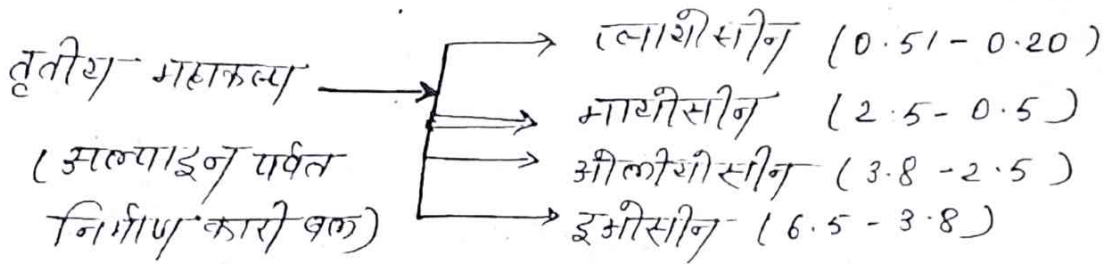 तृतीय महाकल्प
(अल्पाइन पर्वत
निर्माण कारी बल)
प्लायोसीन (0.51 - 0.20)
मायोसीन (2.5 - 0.5)
ओलीगोसीन (3.8 - 2.5)
इओसीन (6.5 - 3.8)